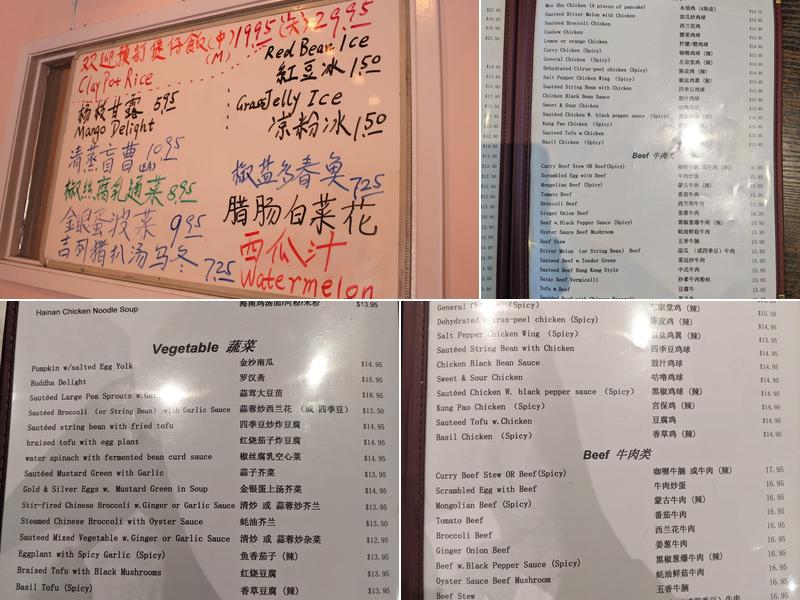 欢迎預訂煲仔飯(中)19.95 (大)29.95
(M)
ClayPot Rice
Red Bean Ice
紅豆冰 1.50
杨枝甘露 5.95
Mango Delight
Grass Jelly Ice
凉粉冰 1.50
清蒸盲曹 10.95
椒盐多春魚 7.25
椒丝腐乳通菜 8.95
腊肠白菜花
金銀蛋菠菜 9.95
吉列猪扒汤乌冬 7.25
西瓜汁
Watermelon
Moo Shu Chicken (4 pieces of pancake) 木须鸡 (4块皮)
Sautéed Bitter Melon with Chicken 凉瓜炒鸡球
Sautéed Broccoli Chicken 西兰花鸡
Cashew Chicken 腰果鸡球
Lemon or orange Chicken 柠檬/橙鸡球
Curry Chicken (Spicy) 咖喱鸡球 (辣)
General Chicken (Spicy) 左宗堂鸡 (辣)
Dehydrated Citrus-peel chicken (Spicy) 陈皮鸡 (辣)
Salt Pepper Chicken Wing (Spicy) 椒盐鸡翼 (辣)
Sautéed String Bean with Chicken 四季豆鸡球
Chicken Black Bean Sauce 豉汁鸡球
Sweet & Sour Chicken 咕噜鸡球
Sautéed Chicken W. black pepper sauce (Spicy) 黑椒鸡球 (辣)
Kung Pao Chicken (Spicy) 宫保鸡 (辣)
Sauteed Tofu w.Chicken 豆腐鸡
Basil Chicken (Spicy) 香草鸡 (辣)
Beef 牛肉类
Curry Beef Stew OR Beef(Spicy) 咖喱牛腩 或牛肉 (辣)
Scrambled Egg with Beef 牛肉炒蛋
Mongolian Beef (Spicy) 蒙古牛肉 (辣)
Tomato Beef 番茄牛肉
Broccoli Beef 西兰花牛肉
Ginger Onion Beef 姜葱牛肉 16.95
Beef w.Black Pepper Sauce (Spicy) 黑椒葱爆牛肉 (辣) 16.95
Oyster Sauce Beef Mushroom 蚝油鲜菇牛肉 16.95
Beef Stew 五香牛腩 16.95
Bitter Melon (or String Bean) Beef 凉瓜 (或四季豆) 牛肉 16.95
Sauteed Beef w.Tender Green 菜远炒牛肉 16.95
Sauteed Beef Hong Kong Style 中式牛肉 16.95
Satay Beef Vermicelli 沙爹牛肉粉丝 16.95
Tofu w.Beef 豆腐牛肉
Hainan Chicken Noodle Soup 海南鸡汤面/河粉/米粉 $13.95
Vegetable 蔬菜
Pumpkin w/salted Egg Yolk 金沙南瓜 $14.95
Buddha Delight 罗汉斋 $15.95
Sautéed Large Pea Sprouts w.Gar 蒜茸大豆苗 $18.95
Sautéed Broccoli (or String Bean) with Garlic Sauce 蒜蓉炒西兰花 (或 四季豆) $13.50
Sautéed string bean with fried tofu 四季豆炒炸豆腐 $14.95
braised tofu with egg plant 红烧茄子炸豆腐 $14.95
water spinach with fermented bean curd sauce 椒丝腐乳空心菜 $14.95
Sautéed Mustard Green with Garlic 蒜子芥菜 $13.95
Gold & Silver Eggs w. Mustard Green in Soup 金银蛋上汤芥菜 $14.95
Stir-fired Chinese Broccoli w.Ginger or Garlic Sauce 清炒 或 蒜蓉炒芥兰 $13.95
Steamed Chinese Broccoli with Oyster Sauce 蚝油芥兰 $13.50
Sauteed Mixed Vegetable w.Ginger or Garlic Sauce 清炒 或 蒜蓉炒杂菜 $12.95
Eggplant with Spicy Garlic (Spicy) 鱼香茄子 (辣) $13.95
Braised Tofu with Black Mushrooms 红烧豆腐 $13.95
Basil Tofu (Spicy) 香草豆腐 (辣) $13.95
General Chicken (Spicy) 左宗堂鸡 (辣)
Dehydrated Citrus-peel chicken (Spicy) 陈皮鸡 (辣) $15.50
Salt Pepper Chicken Wing (Spicy) 椒盐鸡翼 (辣) $14.95
Sautéed String Bean with Chicken 四季豆鸡球 $13.95
Chicken Black Bean Sauce 豉汁鸡球 $14.95
Sweet & Sour Chicken 咕噜鸡球 $14.95
Sautéed Chicken W. black pepper sauce (Spicy) 黑椒鸡球 (辣) $14.95
Kung Pao Chicken (Spicy) 宫保鸡 (辣) $14.95
Sauteed Tofu w.Chicken 豆腐鸡 $14.95
Basil Chicken (Spicy) 香草鸡 (辣) $14.95
Beef 牛肉类
Curry Beef Stew OR Beef(Spicy) 咖喱牛腩 或牛肉 (辣) 17.95
Scrambled Egg with Beef 牛肉炒蛋 16.95
Mongolian Beef (Spicy) 蒙古牛肉 (辣) 16.95
Tomato Beef 番茄牛肉 16.95
Broccoli Beef 西兰花牛肉 16.95
Ginger Onion Beef 姜葱牛肉 16.95
Beef w.Black Pepper Sauce (Spicy) 黑椒葱爆牛肉 (辣) 16.95
Oyster Sauce Beef Mushroom 蚝油鲜菇牛肉 16.95
Beef Stew 五香牛腩 16.95